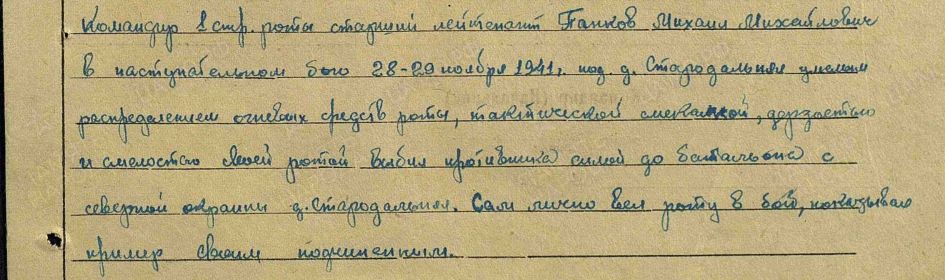 Командир 1 стр. роты старший лейтенант Панков Михаил Михайлович
в наступательном бою 28-29 ноября 1941г. под д. Стародальняя умелым
распределением огневых средств роты, тактической смекалкой, дерзостью
и смелостью своей ротой выбил противника силой до батальона с
северной окраины д. Стародальняя. Сам лично вел роту в бой, показывал
пример своим подчиненным.